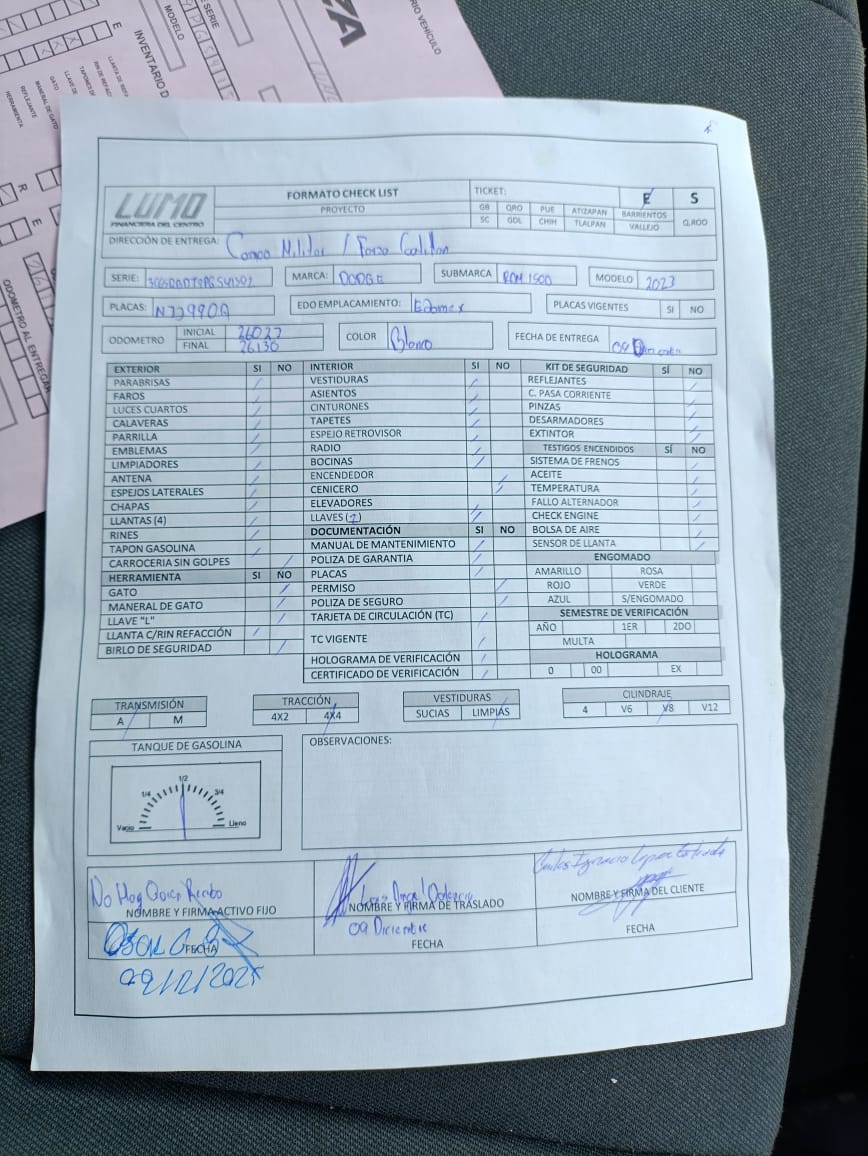 RIO VEHICULO
SERIE
MODELO
INVENTARIO D
LLAVE DE
GATO
MANERAL DE GATO
REFLEJANTE
HERRAMIENTA
ODOMETRO AL ENTREGAR
LUMO
FINANCIERA DEL CENTRO
FORMATO CHECK LIST
PROYECTO
TICKET:
E S
GB QRO PUE ATIZAPAN BARRIENTOS Q.ROO
SC GDL CHIH TLALPAN VALLEJO
DIRECCIÓN DE ENTREGA: Campo Militar /
SERIE: MARCA: DODGE SUBMARCA RAM 1500 MODELO 2023
PLACAS: EDO EMPLACAMIENTO: Edomex PLACAS VIGENTES SI NO
ODOMETRO INICIAL 26027 COLOR Blanco FECHA DE ENTREGA 09 Diciembre
FINAL 26136
EXTERIOR SI NO INTERIOR SI NO KIT DE SEGURIDAD SÍ NO
PARABRISAS VESTIDURAS REFLEJANTES
FAROS ASIENTOS C. PASA CORRIENTE
LUCES CUARTOS CINTURONES PINZAS
CALAVERAS TAPETES DESARMADORES
PARRILLA ESPEJO RETROVISOR EXTINTOR
EMBLEMAS RADIO TESTIGOS ENCENDIDOS SÍ NO
LIMPIADORES BOCINAS SISTEMA DE FRENOS
ANTENA ENCENDEDOR ACEITE
ESPEJOS LATERALES CENICERO TEMPERATURA
CHAPAS ELEVADORES FALLO ALTERNADOR
LLANTAS (4) LLAVES (1) CHECK ENGINE
RINES DOCUMENTACIÓN SI NO BOLSA DE AIRE
TAPON GASOLINA MANUAL DE MANTENIMIENTO SENSOR DE LLANTA
CARROCERIA SIN GOLPES POLIZA DE GARANTIA ENGOMADO
HERRAMIENTA SI NO PLACAS AMARILLO ROSA
GATO PERMISO ROJO VERDE
MANERAL DE GATO POLIZA DE SEGURO AZUL S/ENGOMADO
LLAVE "L" TARJETA DE CIRCULACIÓN (TC) SEMESTRE DE VERIFICACIÓN
LLANTA C/RIN REFACCIÓN TC VIGENTE AÑO 1ER 2DO
BIRLO DE SEGURIDAD MULTA
HOLOGRAMA DE VERIFICACIÓN HOLOGRAMA
CERTIFICADO DE VERIFICACIÓN 0 00 EX
TRANSMISIÓN TRACCIÓN VESTIDURAS CILINDRAJE
A M 4X2 4X4 SUCIAS LIMPIAS 4 V6 V8 V12
TANQUE DE GASOLINA OBSERVACIONES:
1/4 1/2 3/4
Vacio Lleno
No Hay Quien Reciba
NOMBRE Y FIRMA ACTIVO FIJO NOMBRE Y FIRMA DE TRASLADO NOMBRE Y FIRMA DEL CLIENTE
09 Diciembre
FECHA FECHA FECHA
09/12/2025